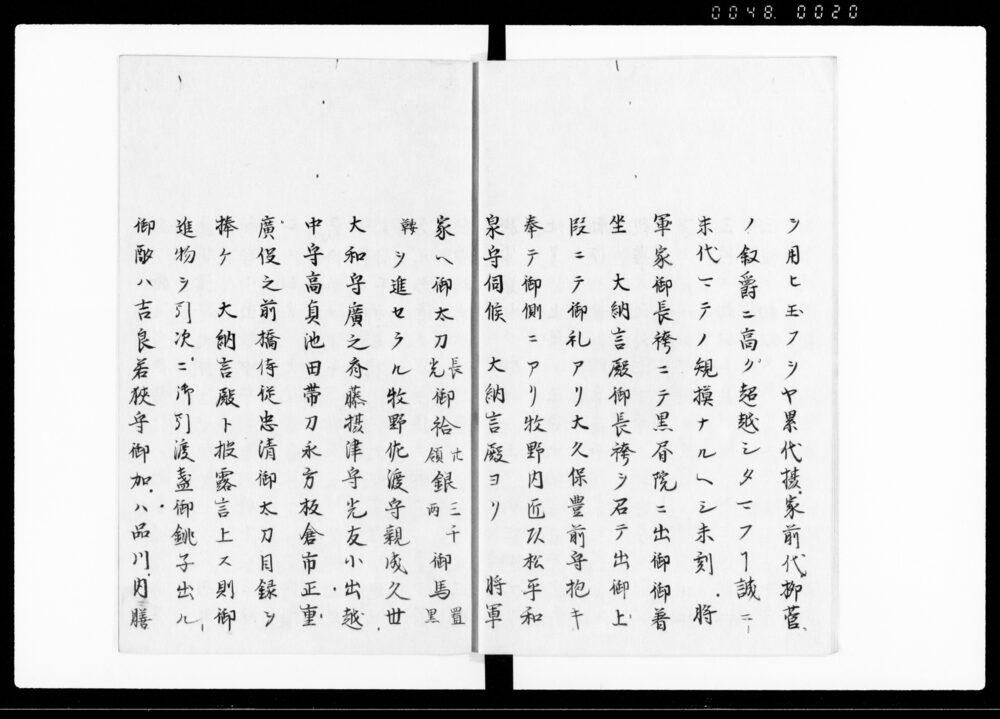 0048.0020
ヲ用ヒ玉フヿヤ累代摂家前代柳営
ノ叙爵ニ高ク超越シタマフヿ誠ニ
末代マテノ規摸ナルヘシ未刻 将
軍家御長袴ニテ黒書院ニ出御御着
坐 大納言殿御長袴ヲ召テ出御上
段ニテ御礼アリ大久保豊前守抱キ
奉テ御側ニアリ牧野内匠頭松平和
泉守伺候 大納言殿ヨリ 将軍
家ヘ御太刀長光御袷廿領銀三千両御馬黒置
鞍ヲ進セラル牧野佐渡守親成久世
大和守廣之斉藤摂津守光友小出越
中守高貞池田帯刀永方板倉市正重
廣役之前橋侍従忠清御太刀目録ヲ
捧ケ 大納言殿ト披露言上ス則御
進物ヲ引次ニ御引渡盞御銚子出ル
御酌ハ吉良若狭守御加ハ品川内膳